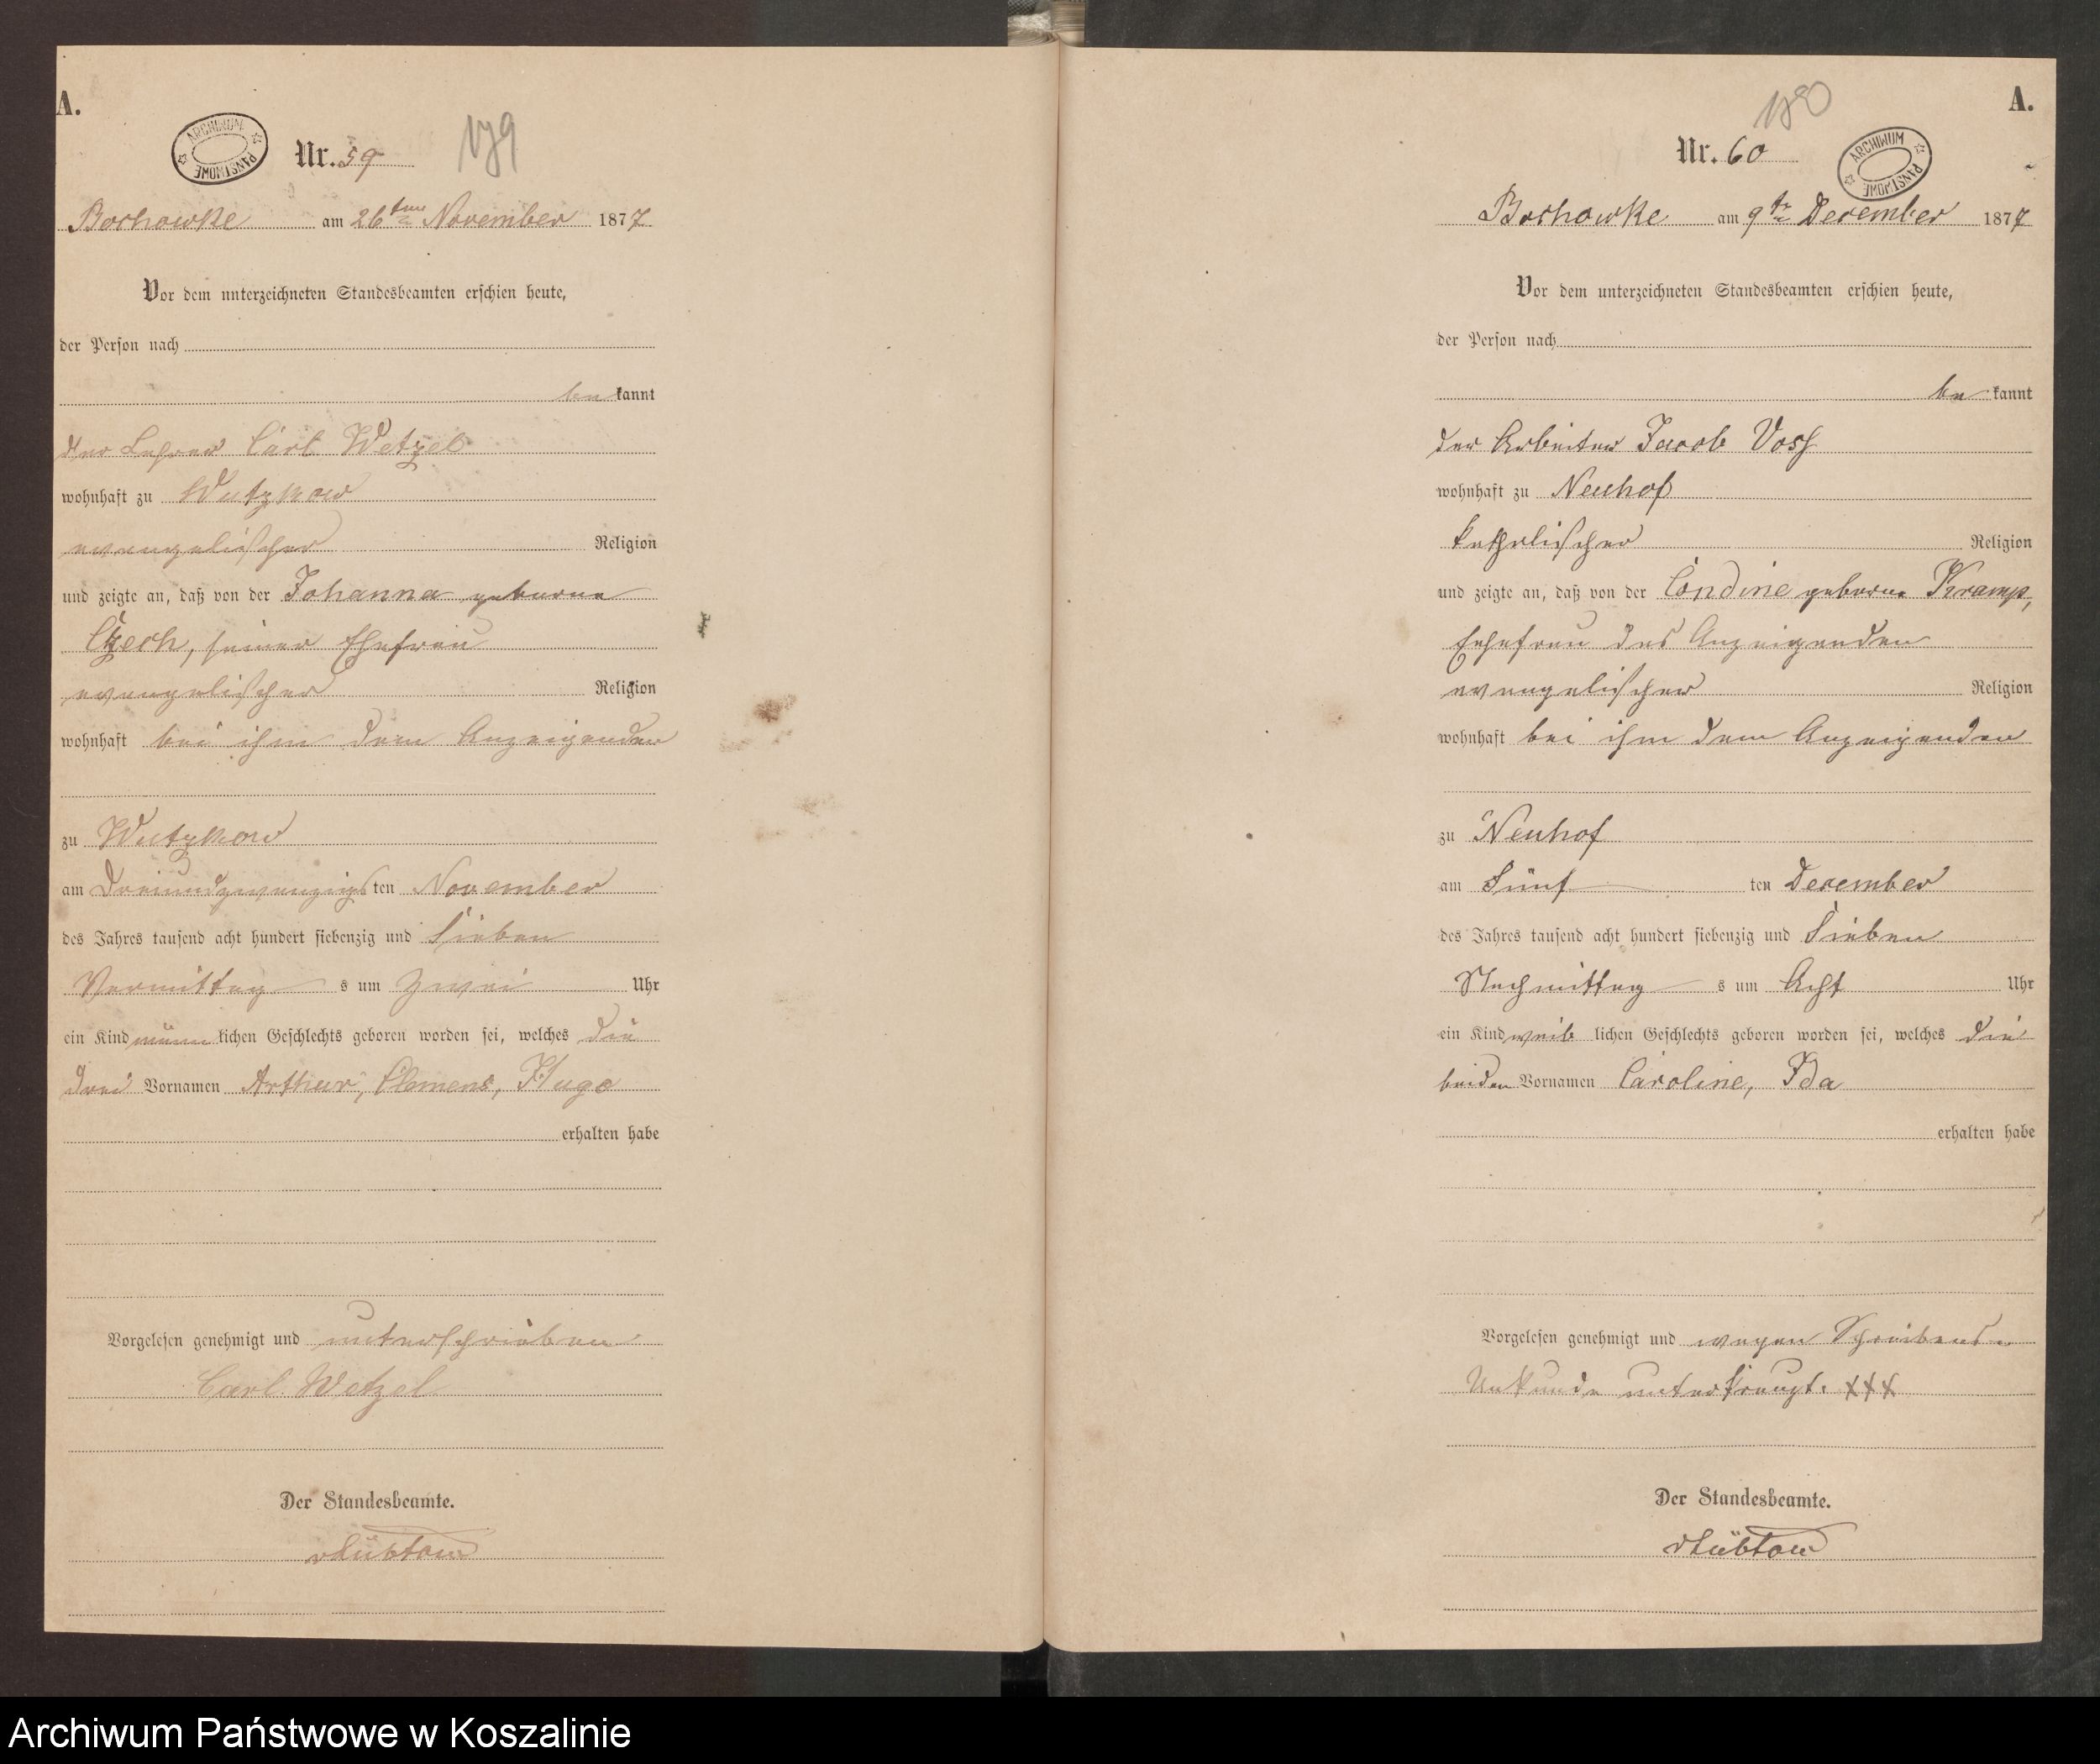 A.
ARCHIWUM PAŃSTWOWE
Nr. 59
179
Bochowke am 26ten November 1877
Vor dem unterzeichneten Standesbeamten erschien heute,
der Person nach
bekannt
der Lehrer Carl Wetzel
wohnhaft zu Wutzkow
evangelischer Religion
und zeigte an, daß von der Johanna geborne
Czech, seiner Ehefrau
evangelischer Religion
wohnhaft bei ihm dem Anzeigenden
zu Wutzkow
am Dreiundzwanzigsten November
des Jahres tausend acht hundert siebenzig und Sieben
Vormittags um Zwei Uhr
ein Kind männlichen Geschlechts geboren worden sei, welches die
drei Vornamen Arthur, Clemens, Hugo
erhalten habe
Vorgelesen genehmigt und unterschrieben
Carl Wetzel
Der Standesbeamte.
A.
180
ARCHIWUM PAŃSTWOWE
Nr. 60
Bochowke am 9te December 1877
Vor dem unterzeichneten Standesbeamten erschien heute,
der Person nach
bekannt
der Arbeiter Jacob Voss
wohnhaft zu Neuhof
katholischer Religion
und zeigte an, daß von der geborne Kramp,
Ehefrau des Anzeigenden
evangelischer Religion
wohnhaft bei ihm dem Anzeigenden
zu Neuhof
am Fünften December
des Jahres tausend acht hundert siebenzig und Sieben
Nachmittags um Acht Uhr
ein Kind weiblichen Geschlechts geboren worden sei, welches die
beiden Vornamen Caroline, Ida
erhalten habe
Vorgelesen genehmigt und wegen Schreibens
Unkunde unterkreuzt. XXX
Der Standesbeamte.
Archiwum Państwowe w Koszalinie